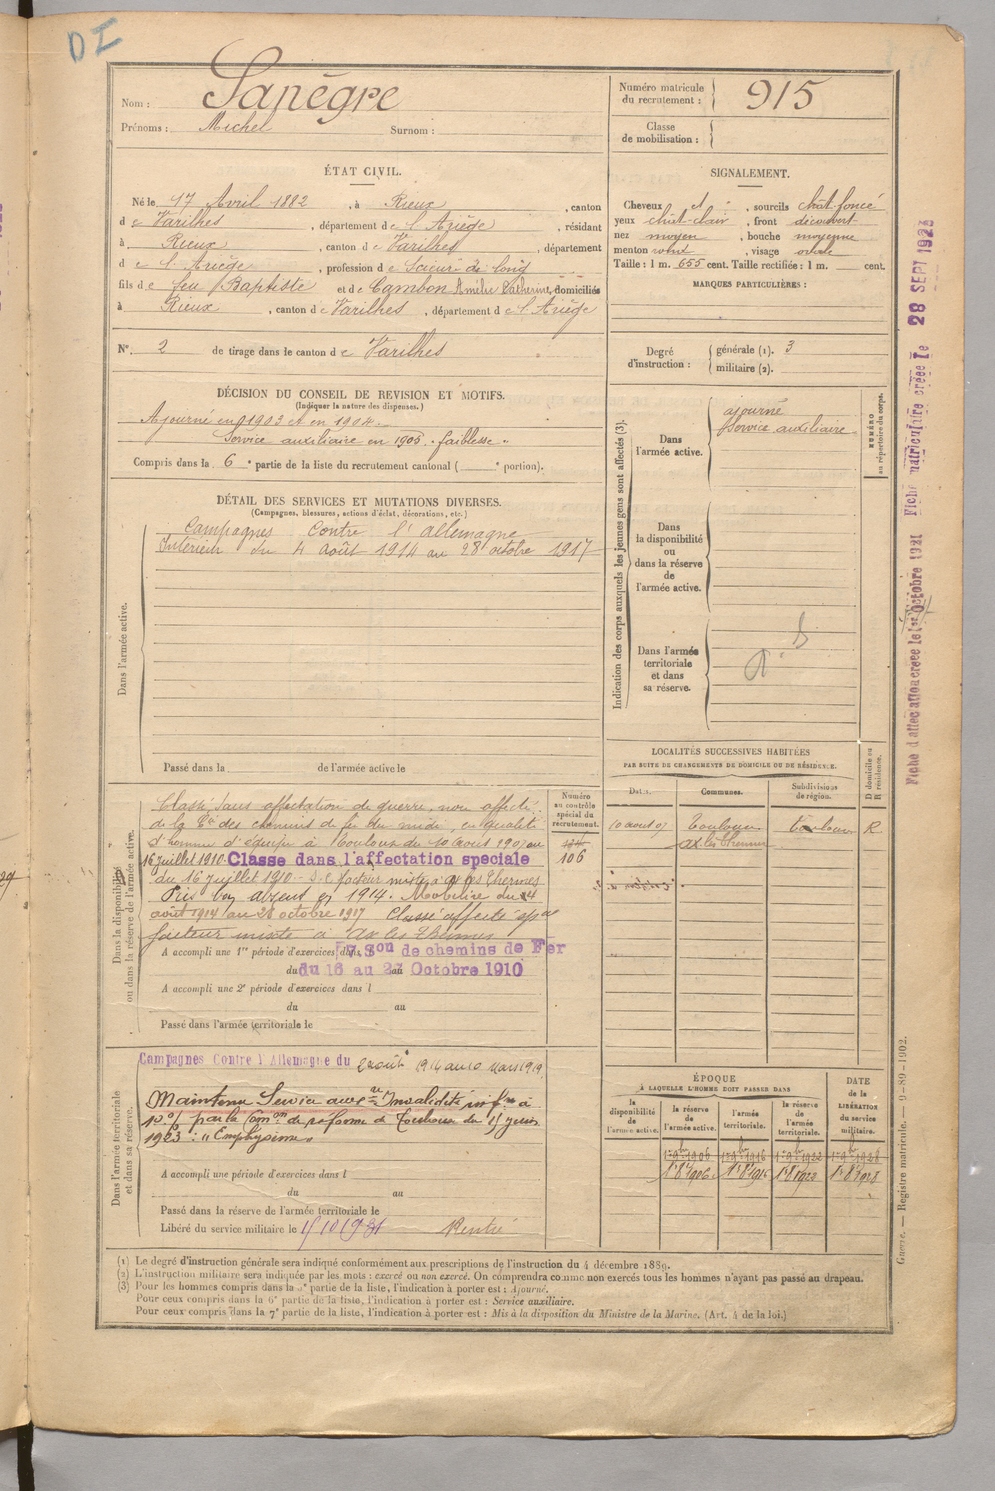 DI
Nom : Sanègre
Prénoms : Michel Surnom :
Numéro matricule du recrutement : 915
Classe de mobilisation :
ÉTAT CIVIL.
Né le 17 Avril 1882, à Rieux, canton
de Varilhes, département de l'Ariège, résidant
à Rieux, canton de Varilhes, département
de l'Ariège, profession de Scieur de long
fils de feu Baptiste et de Cambon Amélie Catherine, domiciliés
à Rieux, canton de Varilhes, département de l'Ariège
N° 2 de tirage dans le canton de Varilhes
SIGNALEMENT.
Cheveux et, sourcils chât-foncé
yeux chât-clair, front découvert
nez moyen, bouche moyenne
menton rond, visage ovale
Taille : 1 m. 655 cent. Taille rectifiée : 1 m. cent.
MARQUES PARTICULIÈRES :
Degré d'instruction : générale (1). 3
militaire (2).
DÉCISION DU CONSEIL DE REVISION ET MOTIFS.
(Indiquer la nature des dispenses.)
Ajourné en 1903 et en 1904.
Service auxiliaire en 1905. "faiblesse"
Compris dans la 6e partie de la liste du recrutement cantonal ( e portion).
DÉTAIL DES SERVICES ET MUTATIONS DIVERSES.
(Campagnes, blessures, actions d'éclat, décorations, etc.)
Dans l'armée active.
Campagnes Contre l'allemagne
Intérieur du 4 août 1914 au 28 octobre 1917
Passé dans la de l'armée active le
Indication des corps auxquels les jeunes gens sont affectés (3).
Dans l'armée active.
ajourné
Service auxiliaire
NUMÉRO au répertoire du corps.
Dans la disponibilité ou dans la réserve de l'armée active.
Dans l'armée territoriale et dans sa réserve.
Fiche d'affectation créée le 1er Octobre 1921
Fiche matriculaire créée le 28 SEPT 1923
LOCALITÉS SUCCESSIVES HABITÉES
PAR SUITE DE CHANGEMENTS DE DOMICILE OU DE RÉSIDENCE.
Dates. Communes. Subdivisions de région. D domicile ou R résidence.
10 aout 07 Toulouse Toulouse R
ax les Thermes
Dans la disponibilité ou dans la réserve de l'armée active.
Numéro au contrôle spécial du recrutement.
106
Classé sans affectation de guerre, non affecté
de la Cie des chemins de fer du midi, en qualité
d'homme d'équipe à Toulouse du 10 aout 1907 au
16 Juillet 1910. Classé dans l'affectation spéciale
du 16 Juillet 1910 facteur mixte à ax les Thermes
août 1914 au 28 octobre 1917 Classé affecté
facteur mixte à ax les Thermes
A accompli une 1re période d'exercices dans 7 Son de chemins de Fer
du 16 au 27 Octobre 1910
A accompli une 2e période d'exercices dans l
du au
Passé dans l'armée territoriale le
Dans l'armée territoriale et dans sa réserve.
Campagnes Contre l'Allemagne du 2 août 1914 au 10 mars 1919
Maintenu Service aux.re Invalidité inf.re à
10 % par la Comon de réforme de Toulouse du 15 juin
1923 : "Emphysème"
A accompli une période d'exercices dans l
du au
Passé dans la réserve de l'armée territoriale le
Libéré du service militaire le 15/10/1931
ÉPOQUE
À LAQUELLE L'HOMME DOIT PASSER DANS
la disponibilité de l'armée active. la réserve de l'armée active. l'armée territoriale. la réserve de l'armée territoriale.
DATE de la LIBÉRATION du service militaire.
1er 9bre 1906 1er 9bre 1916 1er 9bre 1922 1er 9bre 1928
(1) Le degré d'instruction générale sera indiqué conformément aux prescriptions de l'instruction du 4 décembre 1889.
(2) L'instruction militaire sera indiquée par les mots : exercé ou non exercé. On comprendra comme non exercés tous les hommes n'ayant pas passé au drapeau.
(3) Pour les hommes compris dans la 5e partie de la liste, l'indication à porter est : Ajourné.
Pour ceux compris dans la 6e partie de la liste, l'indication à porter est : Service auxiliaire.
Pour ceux compris dans la 7e partie de la liste, l'indication à porter est : Mis à la disposition du Ministre de la Marine. (Art. 4 de la loi.)
Guerre. — Registre matricule. — 9-89-1902.